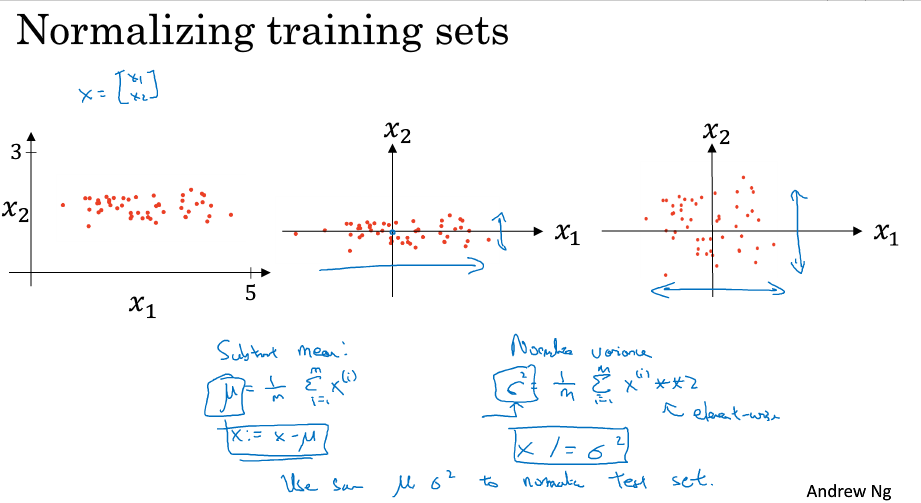 Normalizing training sets
x = [x1 x2]
3
x2
x1
5
x2
x1
x2
x1
Subtract mean:
μ = 1/m Σ i=1 m x(i)
x := x - μ
Normalize variance
σ² = 1/m Σ i=1 m x(i) ** 2
element-wise
x /= σ²
Use same μ σ² to normalize test set.
Andrew Ng